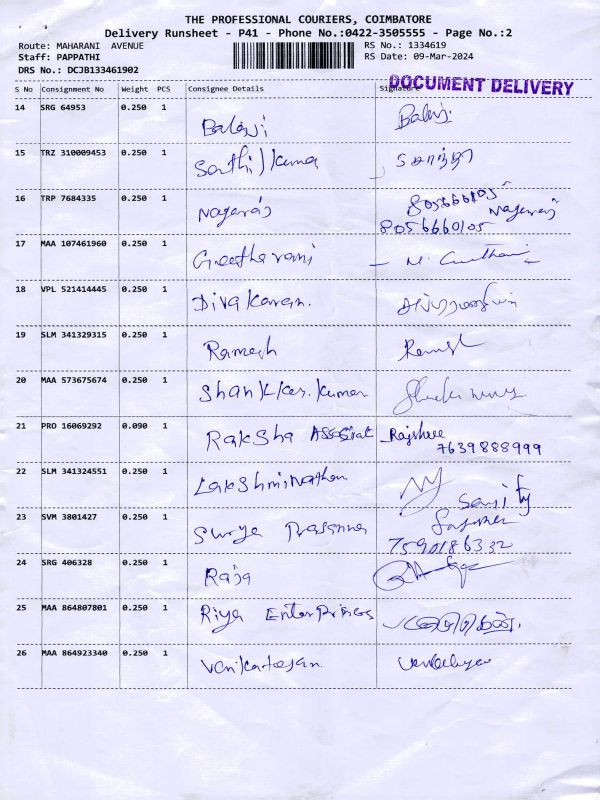 THE PROFESSIONAL COURIERS, COIMBATORE
Delivery Runsheet - P41 - Phone No.:0422-3505555 - Page No.:2
Route: MAHARANI AVENUE RS No.: 1334619
Staff: PAPPATHI RS Date: 09-Mar-2024
DRS No.: DCJB133461902
DOCUMENT DELIVERY
S No Consignment No Weight PCS Consignee Details Signature
14 SRG 64953 0.250 1 Balaji Balaji
15 TRZ 310009453 0.250 1
16 TRP 7684335 0.250 1 Nagaraj 8056660105 Nagaraj
8056660105
17 MAA 107461960 0.250 1 Geetharani
18 VPL 521414445 0.250 1 Divakaran.
19 SLM 341329315 0.250 1 Ramesh Ramesh
20 MAA 573675674 0.250 1 Shankkar.kumar
21 PRO 16069292 0.090 1 Raksha Assosiat Rajshree
7639888999
22 SLM 341324551 0.250 1 Lakshminathan
23 SVM 3801427 0.250 1 Surya Prasanna
7590186332
24 SRG 406328 0.250 1 Raja
25 MAA 864807801 0.250 1 Riya Enterprises
26 MAA 864923340 0.250 1 Venkatesan